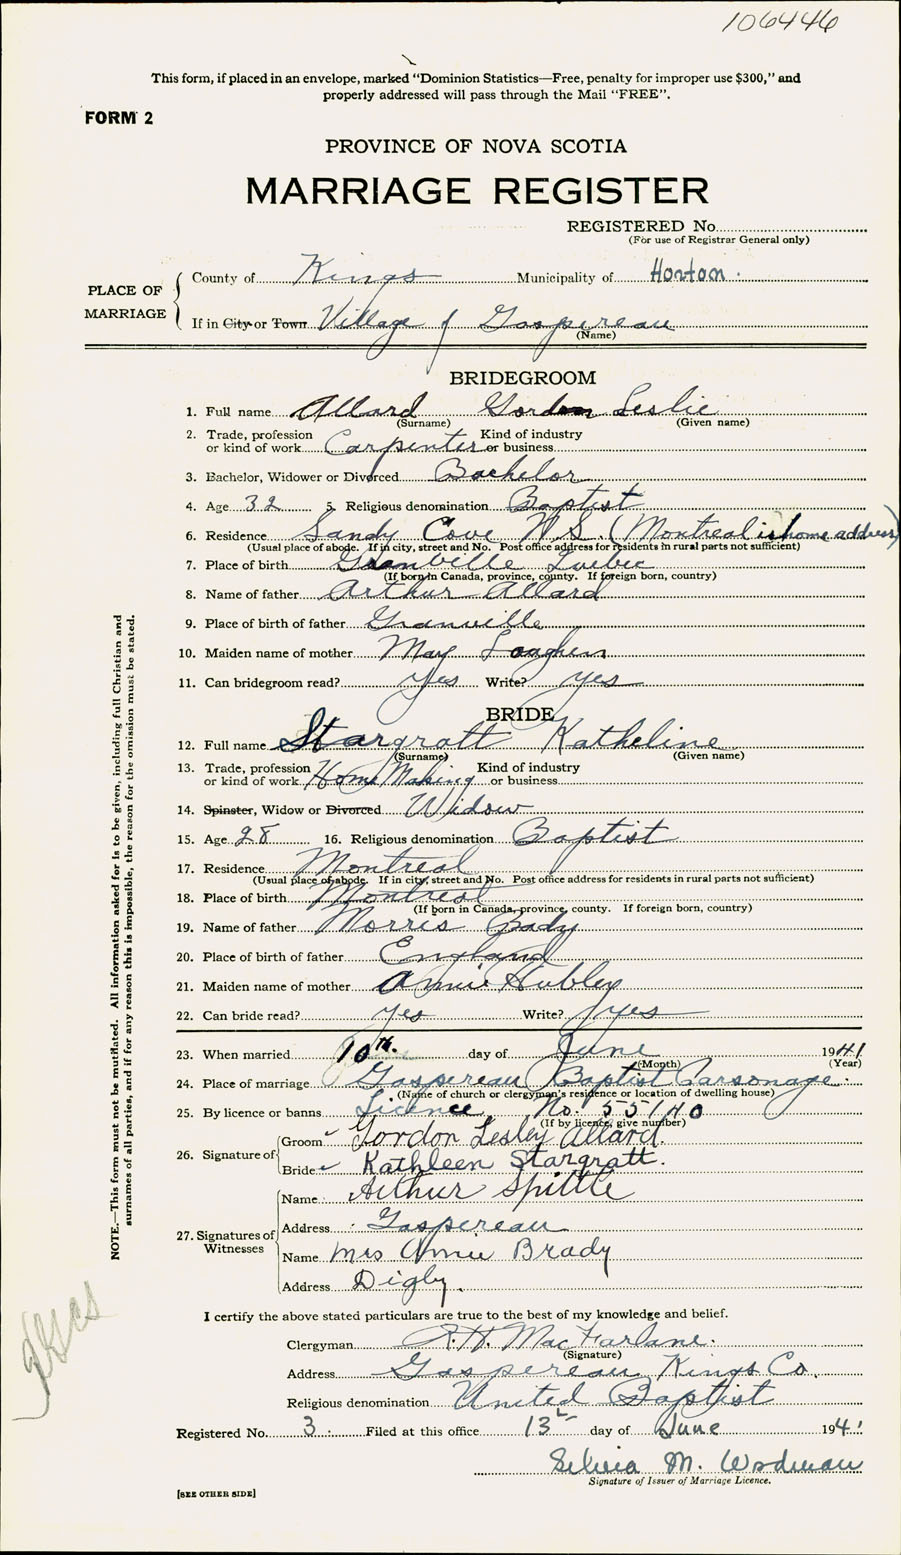 106446
This form, if placed in an envelope, marked "Dominion Statistics—Free, penalty for improper use $300," and
properly addressed will pass through the Mail "FREE".
FORM 2
PROVINCE OF NOVA SCOTIA
MARRIAGE REGISTER
REGISTERED No.
(For use of Registrar General only)
PLACE OF MARRIAGE
County of Kings Municipality of Horton.
If in City or Town Village of Gaspereau
(Name)
BRIDEGROOM
1. Full name Allard Gordon Leslie
(Surname) (Given name)
2. Trade, profession or kind of work Carpenter Kind of industry or business
3. Bachelor, Widower or Divorced Bachelor
4. Age 32 5. Religious denomination Baptist
6. Residence Sandy Cove N.S. (Montreal is home address)
(Usual place of abode. If in city, street and No. Post office address for residents in rural parts not sufficient)
7. Place of birth Grenville Quebec
(If born in Canada, province, county. If foreign born, country)
8. Name of father Arthur Allard
9. Place of birth of father Granville
10. Maiden name of mother May
11. Can bridegroom read? yes Write? yes
BRIDE
12. Full name Stargratt Katheline
(Surname) (Given name)
13. Trade, profession or kind of work Home Making Kind of industry or business
14. Spinster, Widow or Divorced Widow
15. Age 28 16. Religious denomination Baptist
17. Residence Montreal
(Usual place of abode. If in city, street and No. Post office address for residents in rural parts not sufficient)
18. Place of birth Montreal
(If born in Canada, province, county. If foreign born, country)
19. Name of father Morris Bady
20. Place of birth of father England
21. Maiden name of mother Annie Hubley
22. Can bride read? yes Write? yes
23. When married 10th. day of June 1941
(Month) (Year)
24. Place of marriage Gaspereau Baptist Parsonage.
(Name of church or clergyman's residence or location of dwelling house)
25. By licence or banns Licence No. 55140
(If by licence, give number)
26. Signature of
Groom Gordon Lesley Allard.
Bride Kathleen Stargratt.
27. Signatures of Witnesses
Name Arthur Spittle
Address Gaspereau
Name Mrs Annie Brady
Address Digby.
I certify the above stated particulars are true to the best of my knowledge and belief.
Clergyman R.H. MacFarlane.
(Signature)
Address Gaspereau Kings Co.
Religious denomination United Baptist
Registered No. 3. Filed at this office 13 day of June 1941
Silvia M. Woodman
Signature of Issuer of Marriage Licence.
[SEE OTHER SIDE]
NOTE.—This form must not be mutilated. All information asked for is to be given, including full Christian and
surnames of all parties, and if for any reason this is impossible, the reason for the omission must be stated.